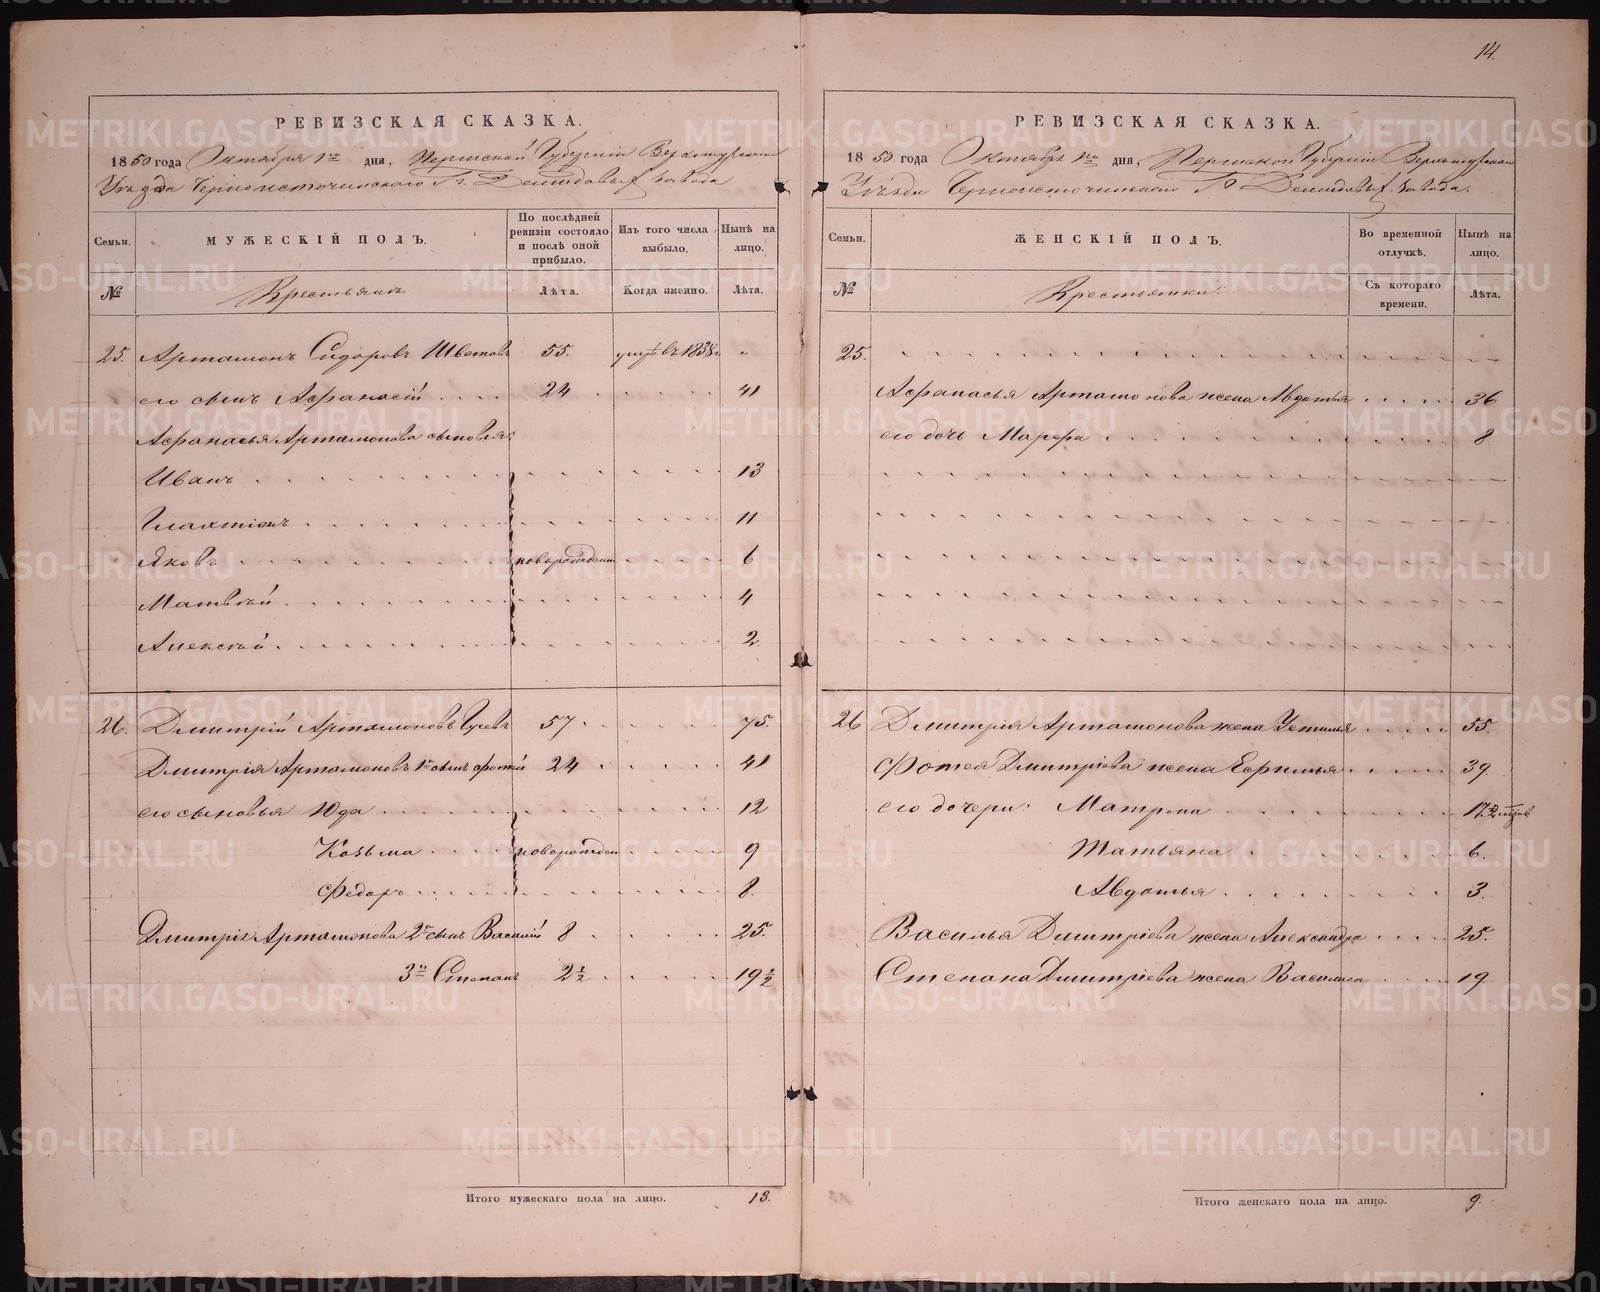 14.
РЕВИЗСКАЯ СКАЗКА.
1850 года Октября 1го дня, Пермской Губернiи Верхотурскаго
Уѣзда Черноисточинскаго Гг. Демидовыхъ завода
Семьи. МУЖЕСКIЙ ПОЛЪ. По послѣдней ревизiи состояло и послѣ оной прибыло. Изъ того числа выбыло. Нынѣ на лицо.
№ Крестьянъ Лѣта. Когда именно. Лѣта.
25. Артамонъ Сидоровъ 55. умре въ 1838 "
его сынъ Афанасiй 24 41
Афанасья Артамонова сыновья:
Иванъ 13
Галактiонъ 11
Яковъ новорожден 6
Матвѣй 4
Алексѣй 2
26. Дмитрiй Артамоновъ Гусевъ 57 75.
Дмитрiя Артамоновъ 1й сынъ Фотѣй 24 41
его сыновья Юда 12
Козьма новорожден 9
Федоръ 8.
Дмитрiя Артамонова 2й сынъ Василiй 8 25.
3й Степанъ 2 1/2 19 1/2
Итого мужескаго пола на лицо. 13.
РЕВИЗСКАЯ СКАЗКА.
1850 года Октября 1го дня, Пермской Губернiи Верхотурскаго
Уѣзда Черноисточинскаго Гг. Демидовыхъ завода.
Семьи. ЖЕНСКIЙ ПОЛЪ. Во временной отлучкѣ. Нынѣ на лицо.
№ Крестьянки: Съ котораго времени. Лѣта.
25.
Афанасья Артамонова жена Авдотья 36
его дочь Марфа 8
26 Дмитрiя Артамонова жена Устинья 55.
Фотея Дмитрiева жена Ефимья 39.
его дочери: Матрона 17
Татьяна 6.
Авдотья 3
Василья Дмитрiева жена Александра 25.
Степана Дмитрiева жена Василиса 19
Итого женскаго пола на лицо. 9.
METRIKI.GASO-URAL.RU